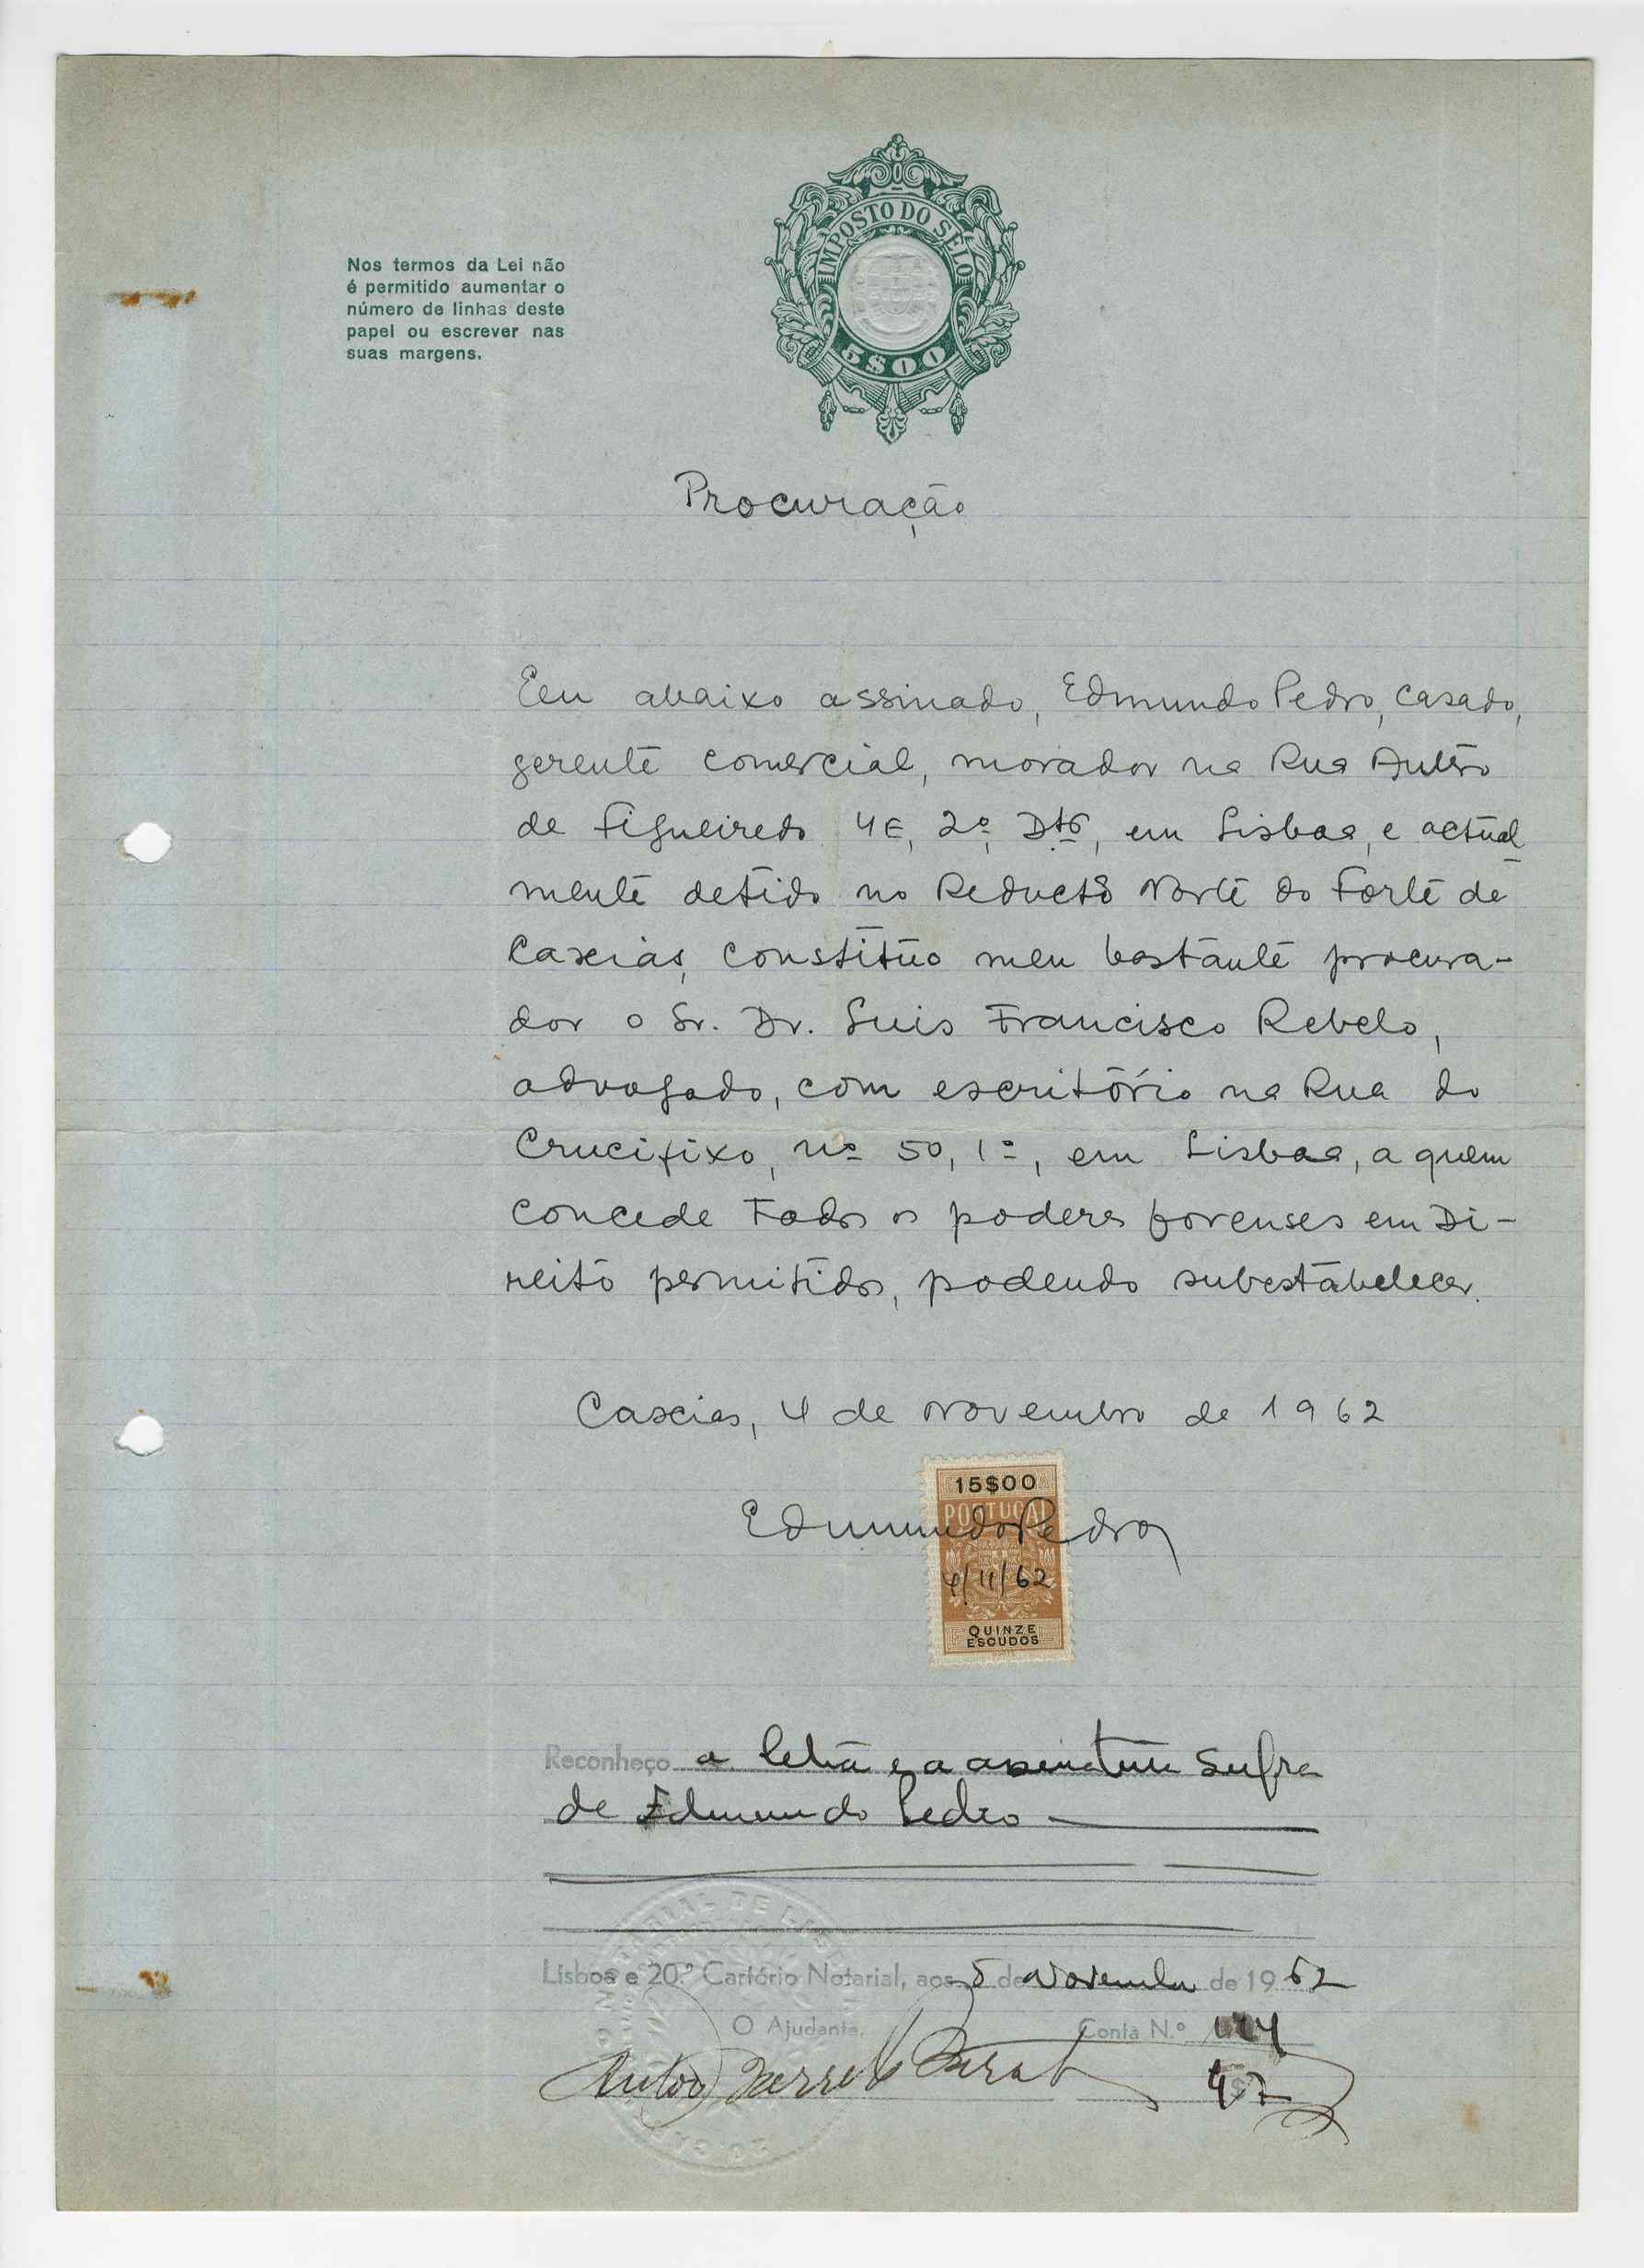 IMPOSTO DO SELO
5$00
Nos termos da Lei não
é permitido aumentar o
número de linhas deste
papel ou escrever nas
suas margens.
Procuração
Eu abaixo assinado, Edmundo Pedro, casado,
gerente comercial, morador na Rua Antero
de Figueiredo 4E, 2º, Dtº, em Lisboa, e actual
mente detido no Reducto Norte do Forte de
Caxias, constituo meu bastante procura-
dor o Sr. Dr. Luis Francisco Rebelo,
advogado, com escritório na Rua do
Crucifixo, nº 50, 1º, em Lisboa, a quem
concede todos os poderes forenses em Di-
reito permitidos, podendo substabelecer.
Caxias, 4 de Novembro de 1962
15$00
PORTUGAL
Edmundo Pedro
4/11/62
QUINZE
ESCUDOS
Reconheço a letra e a assinatura supra
de Edmundo Pedro
Lisboa e 20.º Cartório Notarial, aos 5 de Novembro de 1962
O Ajudante, Conta N.º